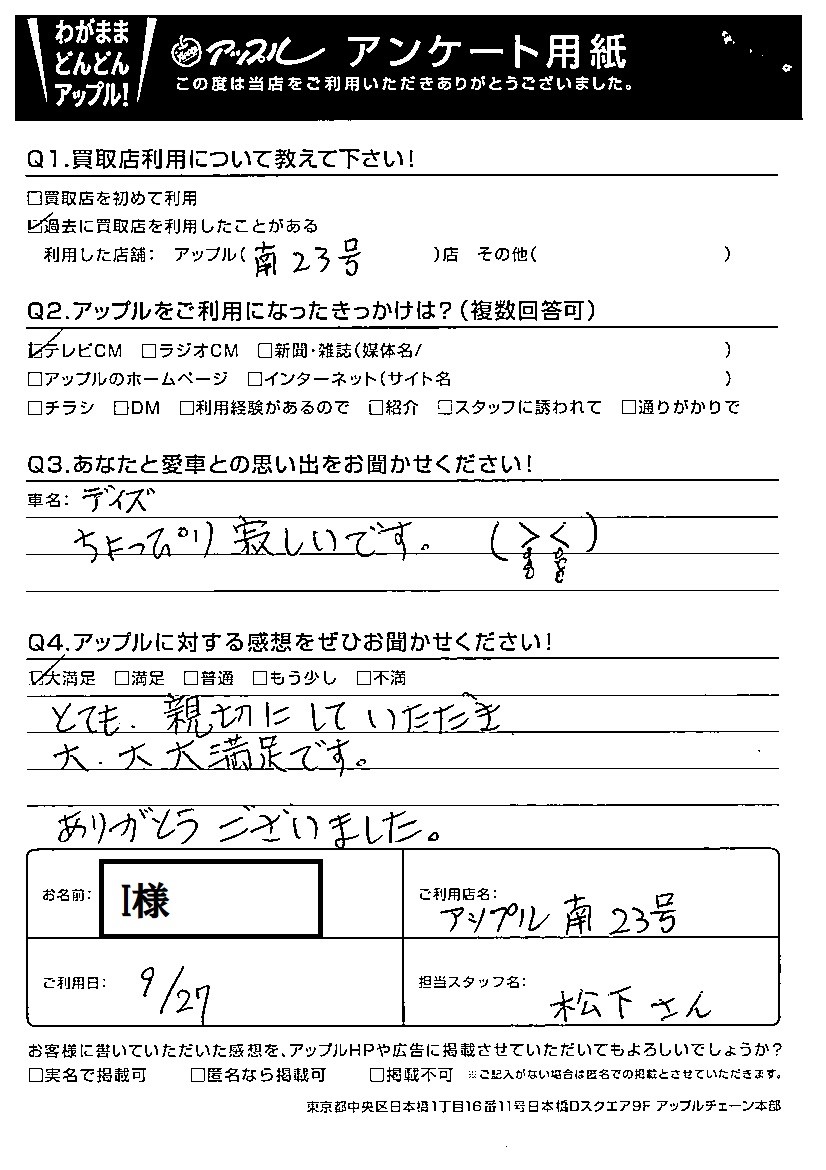 わがまま
どんどん
アップル!
Apple アップル アンケート用紙
この度は当店をご利用いただきありがとうございました。
Q1.買取店利用について教えて下さい!
□買取店を初めて利用
☑過去に買取店を利用したことがある
利用した店舗: アップル(南23号)店 その他( )
Q2.アップルをご利用になったきっかけは?(複数回答可)
☑テレビCM □ラジオCM □新聞・雑誌(媒体名/ )
□アップルのホームページ □インターネット(サイト名 )
□チラシ □DM □利用経験があるので □紹介 □スタッフに誘われて □通りがかりで
Q3.あなたと愛車との思い出をお聞かせください!
車名: デイズ
ちょっぴり寂しいです。 (><)
Q4.アップルに対する感想をぜひお聞かせください!
☑大満足 □満足 □普通 □もう少し □不満
とても.親切にしていただき
大.大大満足です。
ありがとうございました。
お名前: I様
ご利用店名: アップル南23号
ご利用日: 9/27
担当スタッフ名: 松下さん
お客様に書いていただいた感想を、アップルHPや広告に掲載させていただいてもよろしいでしょうか?
□実名で掲載可 □匿名なら掲載可 □掲載不可 ※ご記入がない場合は匿名での掲載とさせていただきます。
東京都中央区日本橋1丁目16番11号日本橋Dスクエア9F アップルチェーン本部